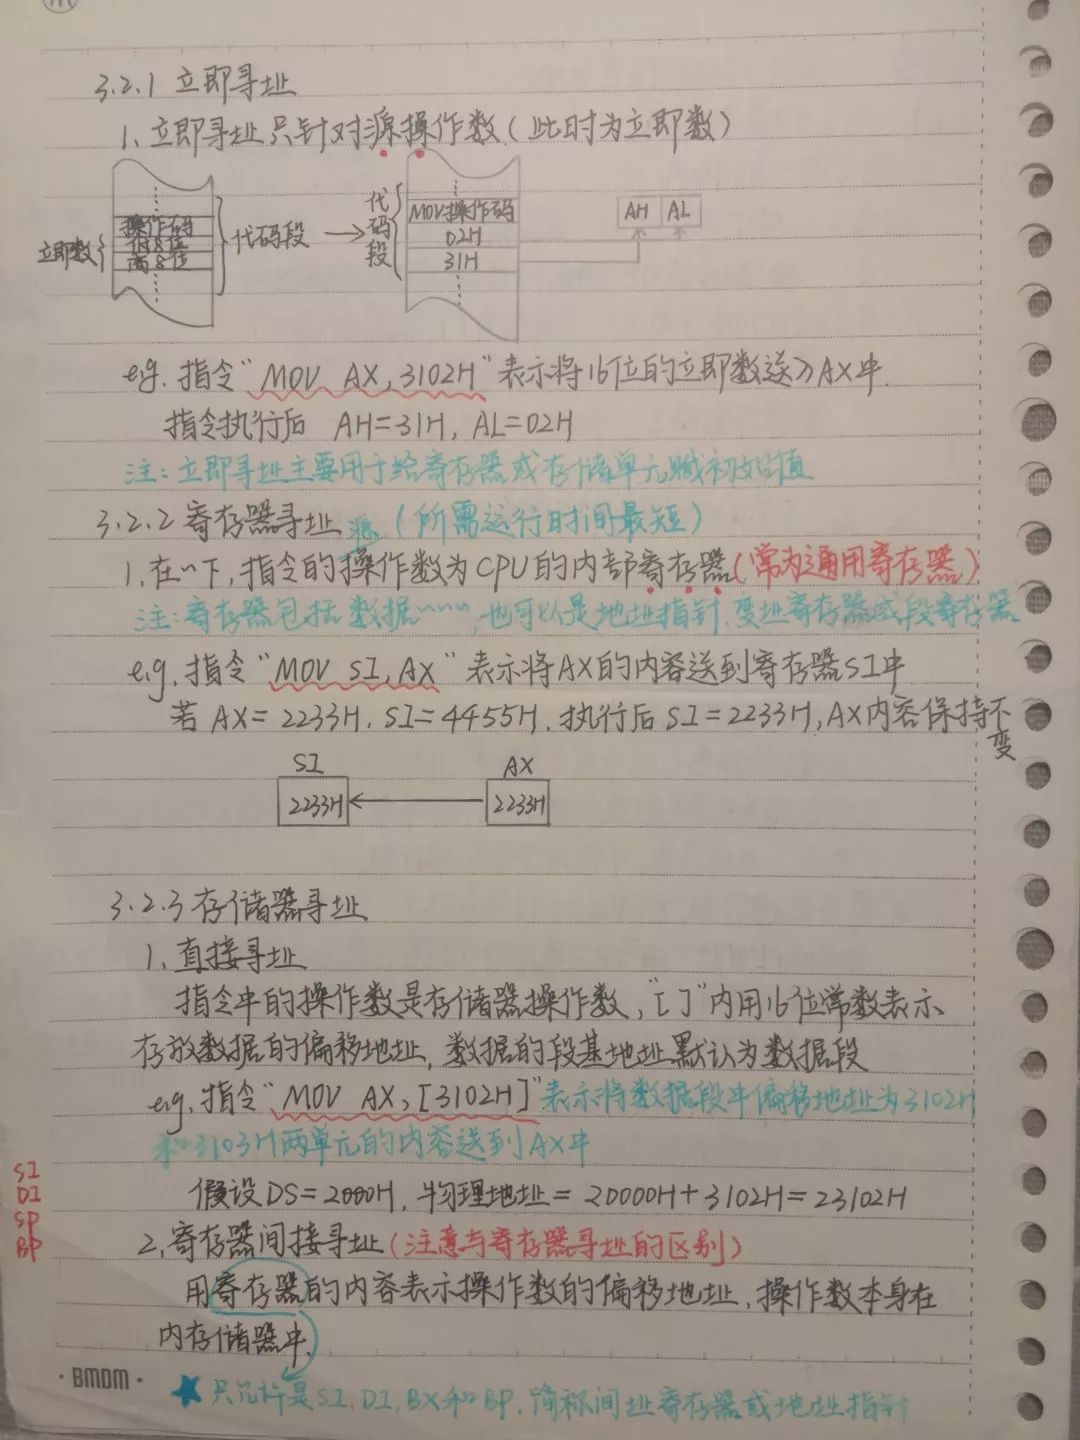 3.2.1 立即寻址
1、立即寻址只针对源操作数(此时为立即数)
操作码
低8位
高8位
立即数
代码段
代码段
MOV操作码
02H
31H
AH AL
e.g. 指令"MOV AX, 3102H"表示将16位的立即数送入AX中.
指令执行后 AH=31H, AL=02H
注: 立即寻址主要用于给寄存器或存储单元赋初始值
3.2.2 寄存器寻址 源 (所需运行时间最短)
1、在〃下, 指令的操作数为CPU的内部寄存器(常为通用寄存器)
注: 寄存器包括数据〃〃〃, 也可以是地址指针、变址寄存器或段寄存器
e.g. 指令"MOV SI, AX" 表示将AX的内容送到寄存器SI中
若 AX=2233H, SI=4455H. 执行后 SI=2233H, AX内容保持不变
SI AX
2233H 2233H
3.2.3 存储器寻址
1、直接寻址
指令中的操作数是存储器操作数, "[ ]"内用16位常数表示
存放数据的偏移地址, 数据的段基地址默认为数据段
e.g. 指令"MOV AX, [3102H]"表示将数据段中偏移地址为3102H
和3103H两单元的内容送到AX中
假设DS=2000H, 物理地址=20000H+3102H=23102H
SI
DI
SP
BP
2、寄存器间接寻址(注意与寄存器寻址的区别)
用寄存器的内容表示操作数的偏移地址, 操作数本身在
内存储器中.
·BMDM·
★ 只允许是SI, DI, BX和BP, 简称间址寄存器或地址指针